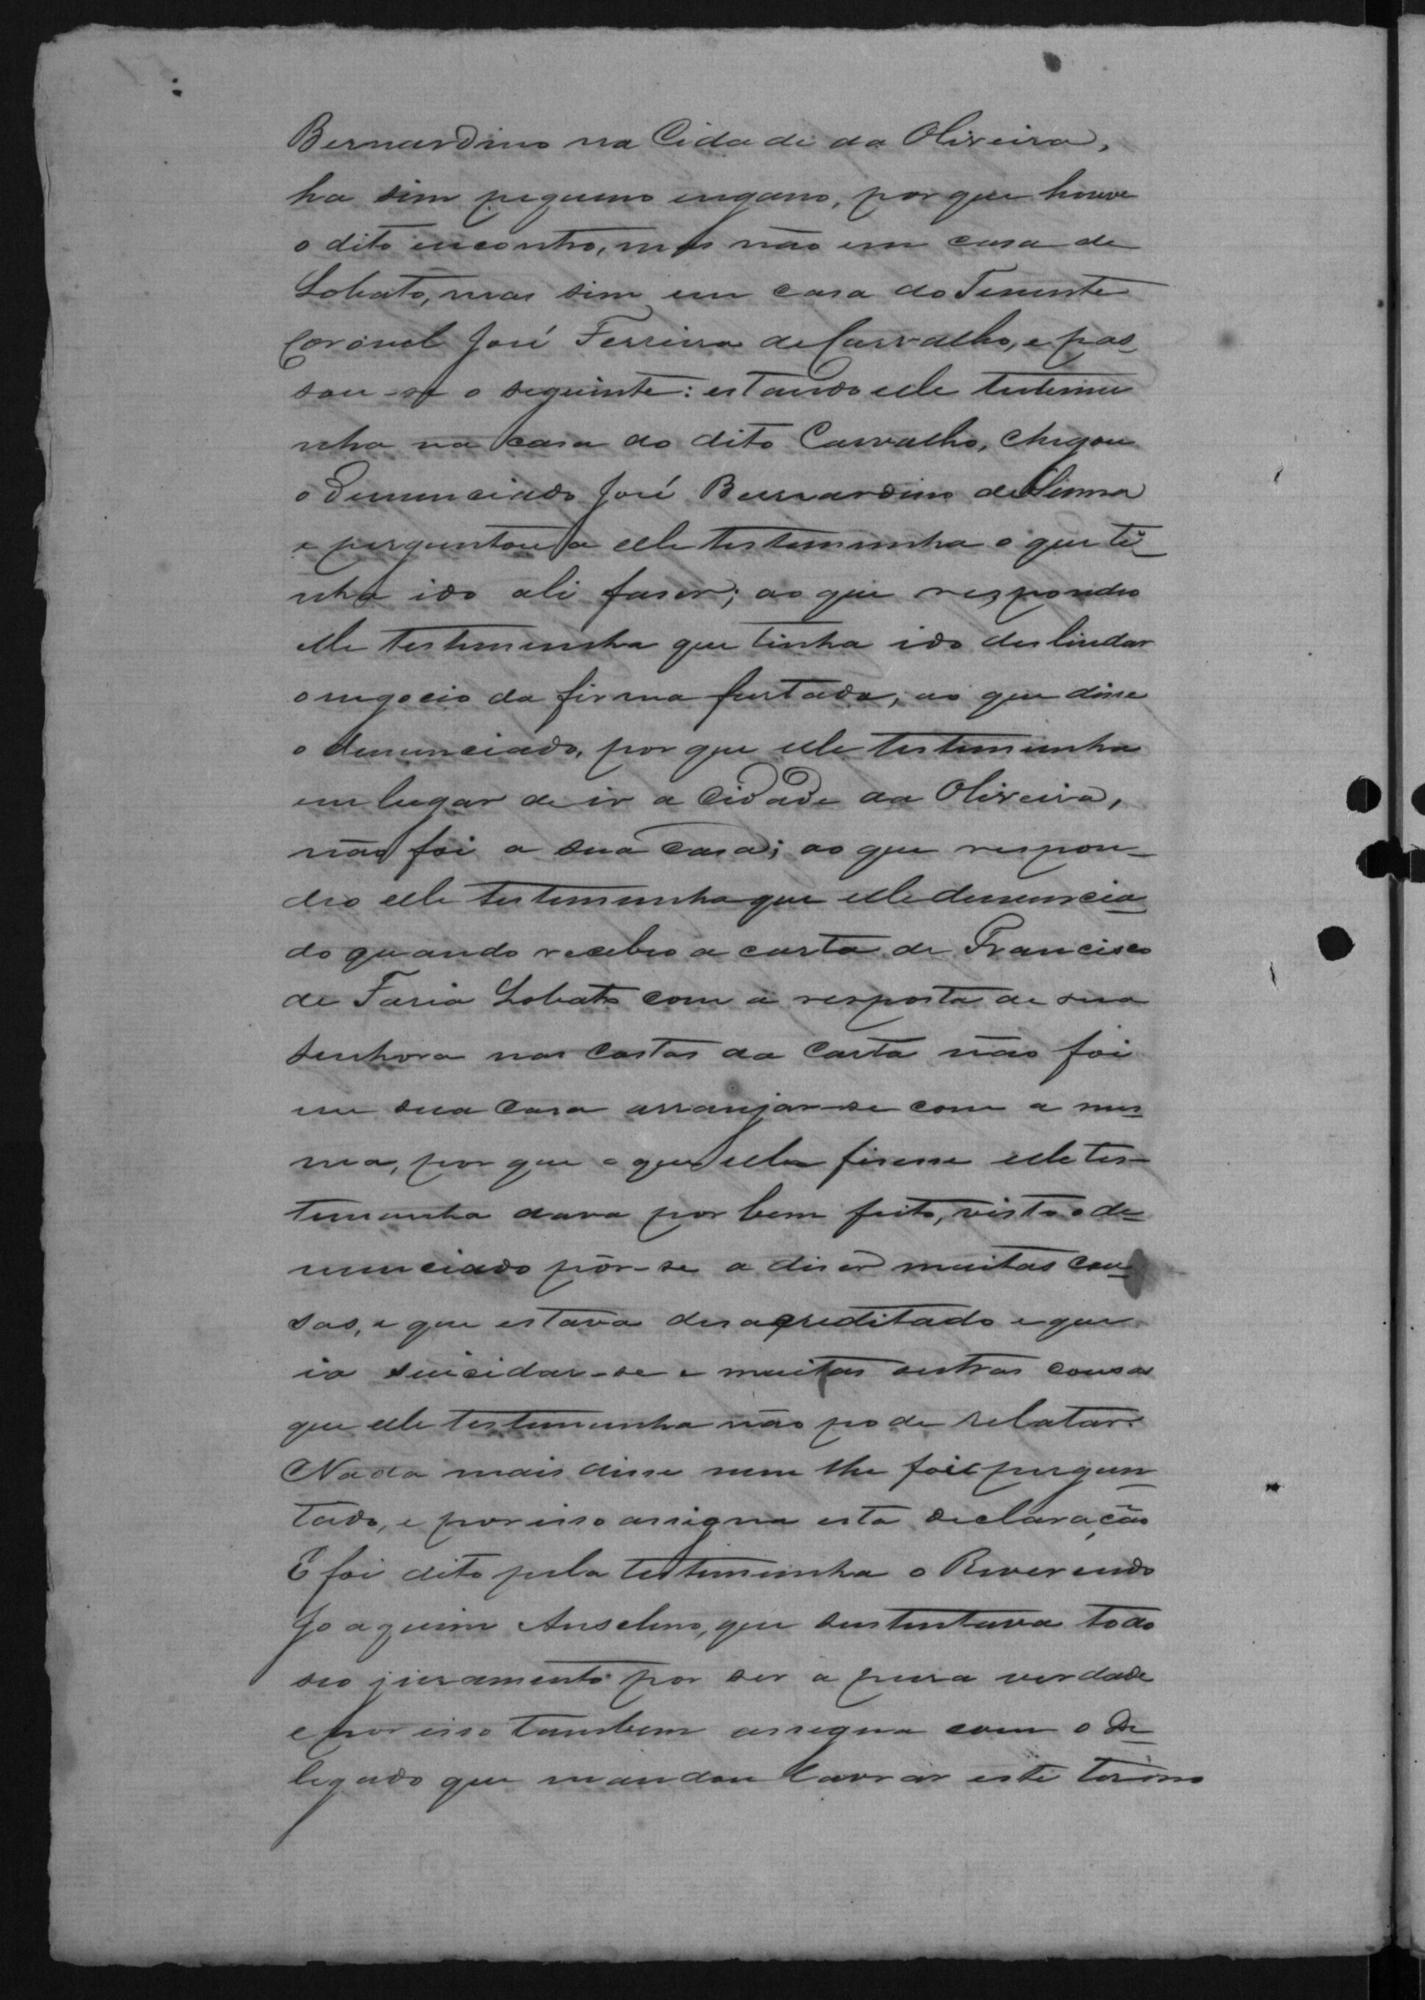 Bernardino na Cidade da Oliveira,
ha sim pequeno engano, por que houve
o dito encontro, mas não em casa de
Lobato, mas sim em casa do Tenente
Coronel José Ferreira de Carvalho, e pas-
sou-se o seguinte: estando elle testemu
nha na casa do dito Carvalho, chegou
o denunciado José Bernardino de Senna
e perguntou a elle testemunha o que ti-
nha ido ali faser; ao que respondeo
elle testemunha que tinha ido deslindar
o negocio da firma furtada, ao que disse
o denunciado, por que elle testemunha
em lugar de ir a Cidade da Oliveira,
não foi a sua casa; ao que respon-
deo elle testemunha que elle denuncia-
do quando recebeo a carta de Francisco
de Faria Lobato com a resposta de sua
senhora nas costas da carta não foi
em sua casa arranjar-se com a mes-
ma, por que o que ella fisesse elle tes-
temunha dava por bem feito, visto o de-
nunciado pôr-se a diser muitas cou-
sas, e que estava desacreditado e que
ia suicidar-se e muitas outras cousas
que elle testemunha não pode relatar.
Nada mais disse nem lhe foi pergun-
tado, e por isso assigna esta declaração
E foi dito pela testemunha o Reverendo
Joaquim Anselmo, que sustentava todo
seo juramento por ser a pura verdade
e por isso tambem assigna com o De-
legado que mandou lavrar este termo